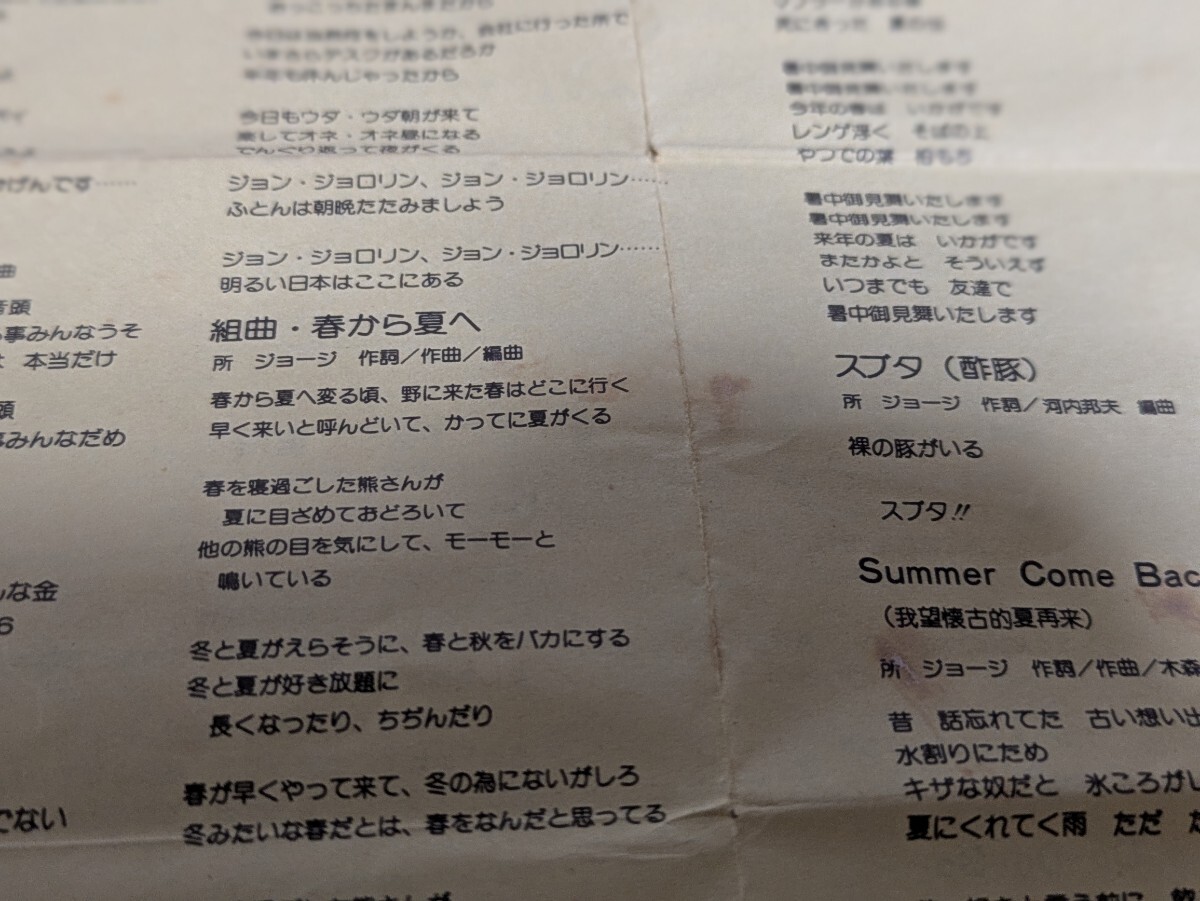 げんです……
曲
音頭
事みんなうそ
本当だけ
頭
みんなだめ
んな金
6
でない
今日もウダ・ウダ朝が来て
ジョン・ジョロリン、ジョン・ジョロリン……
ふとんは朝晩たたみましよう
ジョン・ジョロリン、ジョン・ジョロリン……
明るい日本はここにある
組曲・春から夏へ
所 ジョージ 作詞／作曲／編曲
春から夏へ変る頃、野に来た春はどこに行く
早く来いと呼んどいて、かってに夏がくる
春を寝過ごした熊さんが
夏に目ざめておどろいて
他の熊の目を気にして、モーモーと
鳴いている
冬と夏がえらそうに、春と秋をバカにする
冬と夏が好き放題に
長くなったり、ちぢんだり
春が早くやって来て、冬の為にないがしろ
冬みたいな春だとは、春をなんだと思ってる
暑中御見舞いたします
暑中御見舞いたします
今年の春は いかがです
レンゲ浮く そばの上
やつでの葉 柏もち
暑中御見舞いたします
暑中御見舞いたします
来年の夏は いかがです
またかよと そういえず
いつまでも 友達で
暑中御見舞いたします
スブタ（酢豚）
所 ジョージ 作詞／河内邦夫 編曲
裸の豚がいる
スブタ!!
Summer Come Bac
（我望懐古的夏再来）
所 ジョージ 作詞／作曲／木森
昔 話忘れてた 古い想い出
水割りにため
キザな奴だと 氷ころがし
夏にくれてく雨 ただ